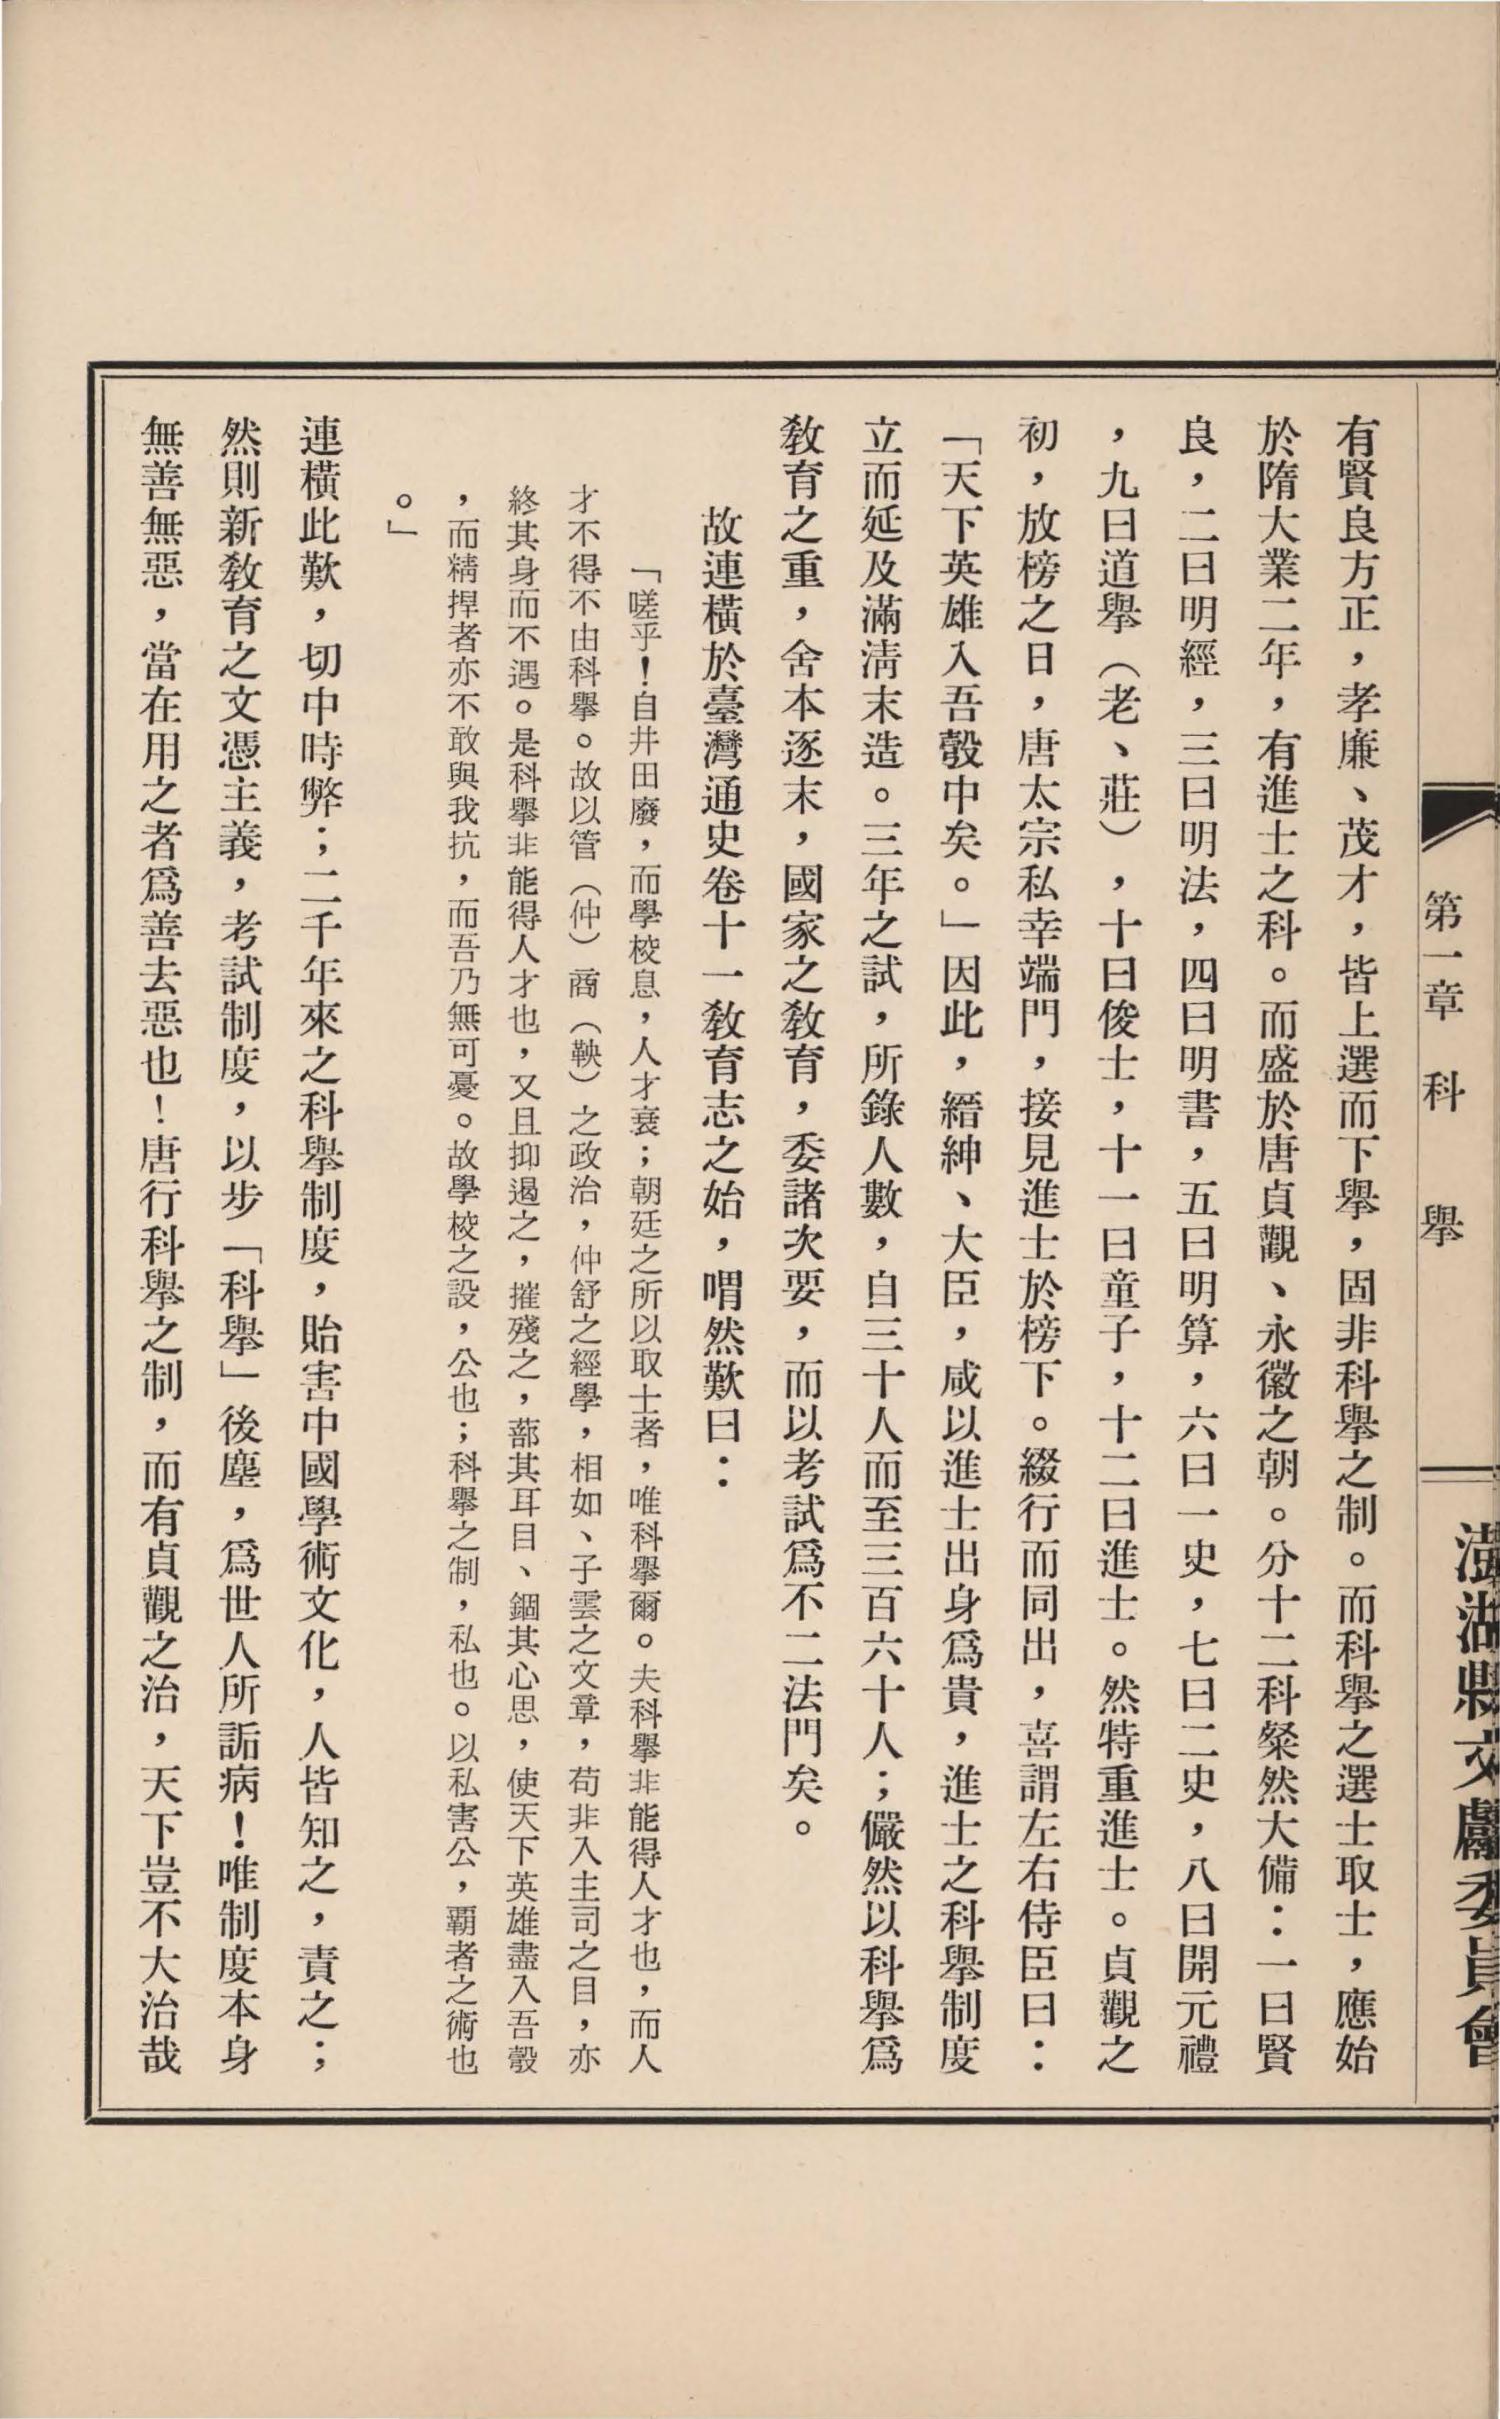 第一章　科　舉
澎湖縣文獻委員會
有賢良方正，孝廉、茂才，皆上選而下舉，固非科舉之制。而科舉之選士取士，應始
於隋大業二年，有進士之科。而盛於唐貞觀、永徽之朝。分十二科粲然大備：一曰賢
良，二曰明經，三曰明法，四曰明書，五曰明算，六曰一史，七曰二史，八曰開元禮
，九曰道舉（老、莊），十曰俊士，十一曰童子，十二曰進士。然特重進士。貞觀之
初，放榜之日，唐太宗私幸端門，接見進士於榜下。綴行而同出，喜謂左右侍臣曰：
「天下英雄入吾彀中矣。」因此，縉紳、大臣，咸以進士出身爲貴，進士之科舉制度
立而延及滿淸末造。三年之試，所錄人數，自三十人而至三百六十人；儼然以科舉爲
敎育之重，舍本逐末，國家之敎育，委諸次要，而以考試爲不二法門矣。
故連橫於臺灣通史卷十一敎育志之始，喟然歎曰：
「嗟乎！自井田廢，而學校息，人才衰；朝廷之所以取士者，唯科舉爾。夫科舉非能得人才也，而人
才不得不由科舉。故以管（仲）商（鞅）之政治，仲舒之經學，相如、子雲之文章，苟非入主司之目，亦
終其身而不遇。是科舉非能得人才也，又且抑遏之，摧殘之，蔀其耳目、錮其心思，使天下英雄盡入吾彀
，而精捍者亦不敢與我抗，而吾乃無可憂。故學校之設，公也；科舉之制，私也。以私害公，覇者之術也
。」
連橫此歎，切中時弊；二千年來之科舉制度，貽害中國學術文化，人皆知之，責之；
然則新敎育之文憑主義，考試制度，以步「科舉」後塵，爲世人所詬病！唯制度本身
無善無惡，當在用之者爲善去惡也！唐行科舉之制，而有貞觀之治，天下豈不大治哉